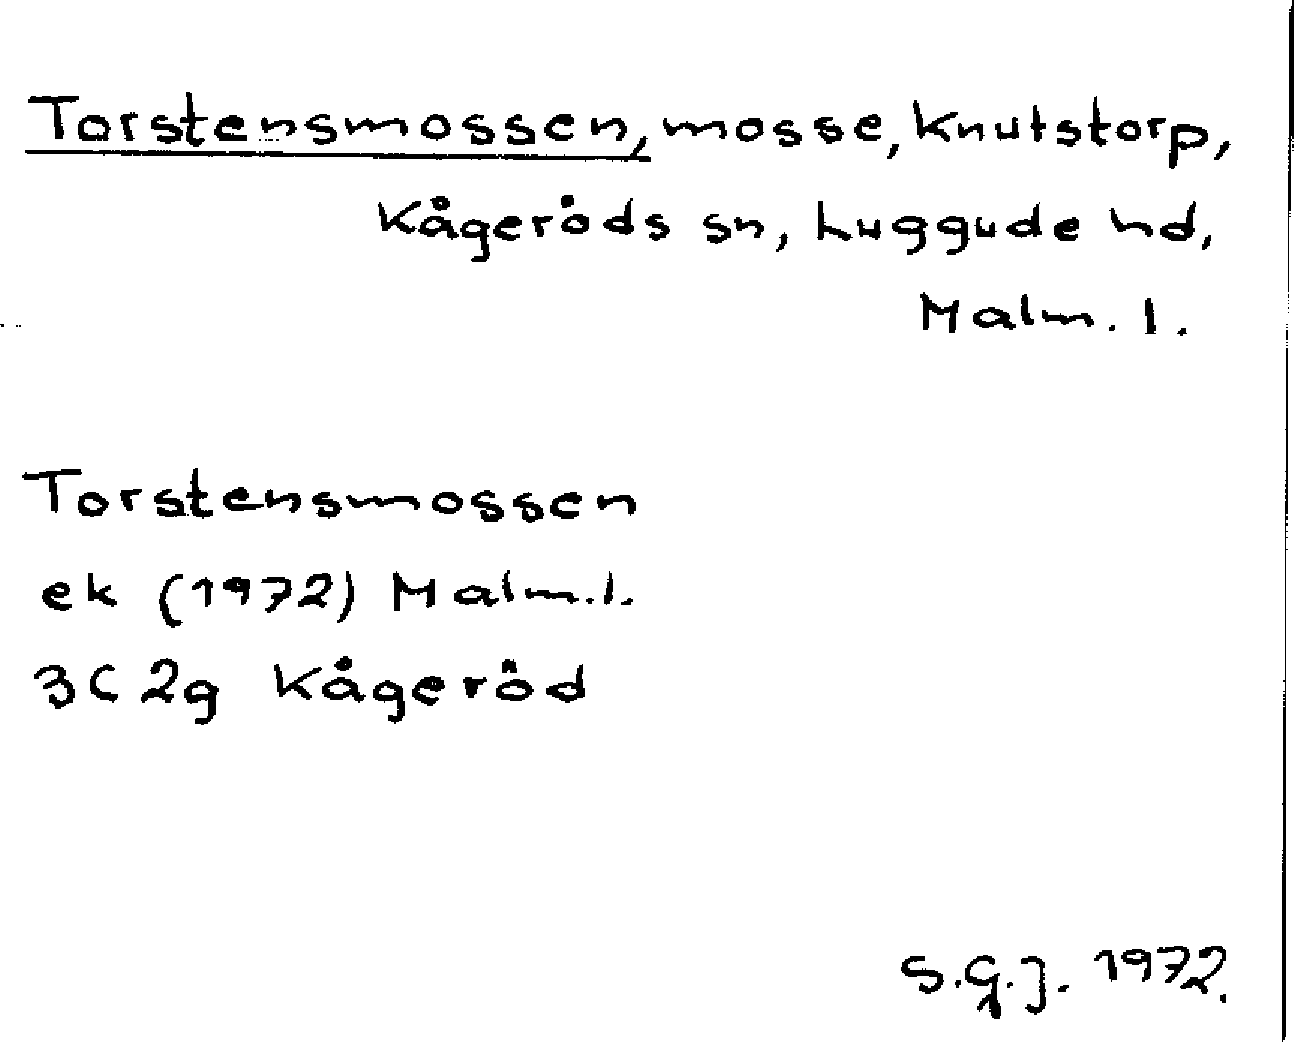 Torstensmossen, mosse, Knutstorp,
Kågeröds sn, Luggude hd,
Malm. l.
Torstensmossen
ek (1972) Malm.l.
3C 2g Kågeröd
S.G.J. 1972.